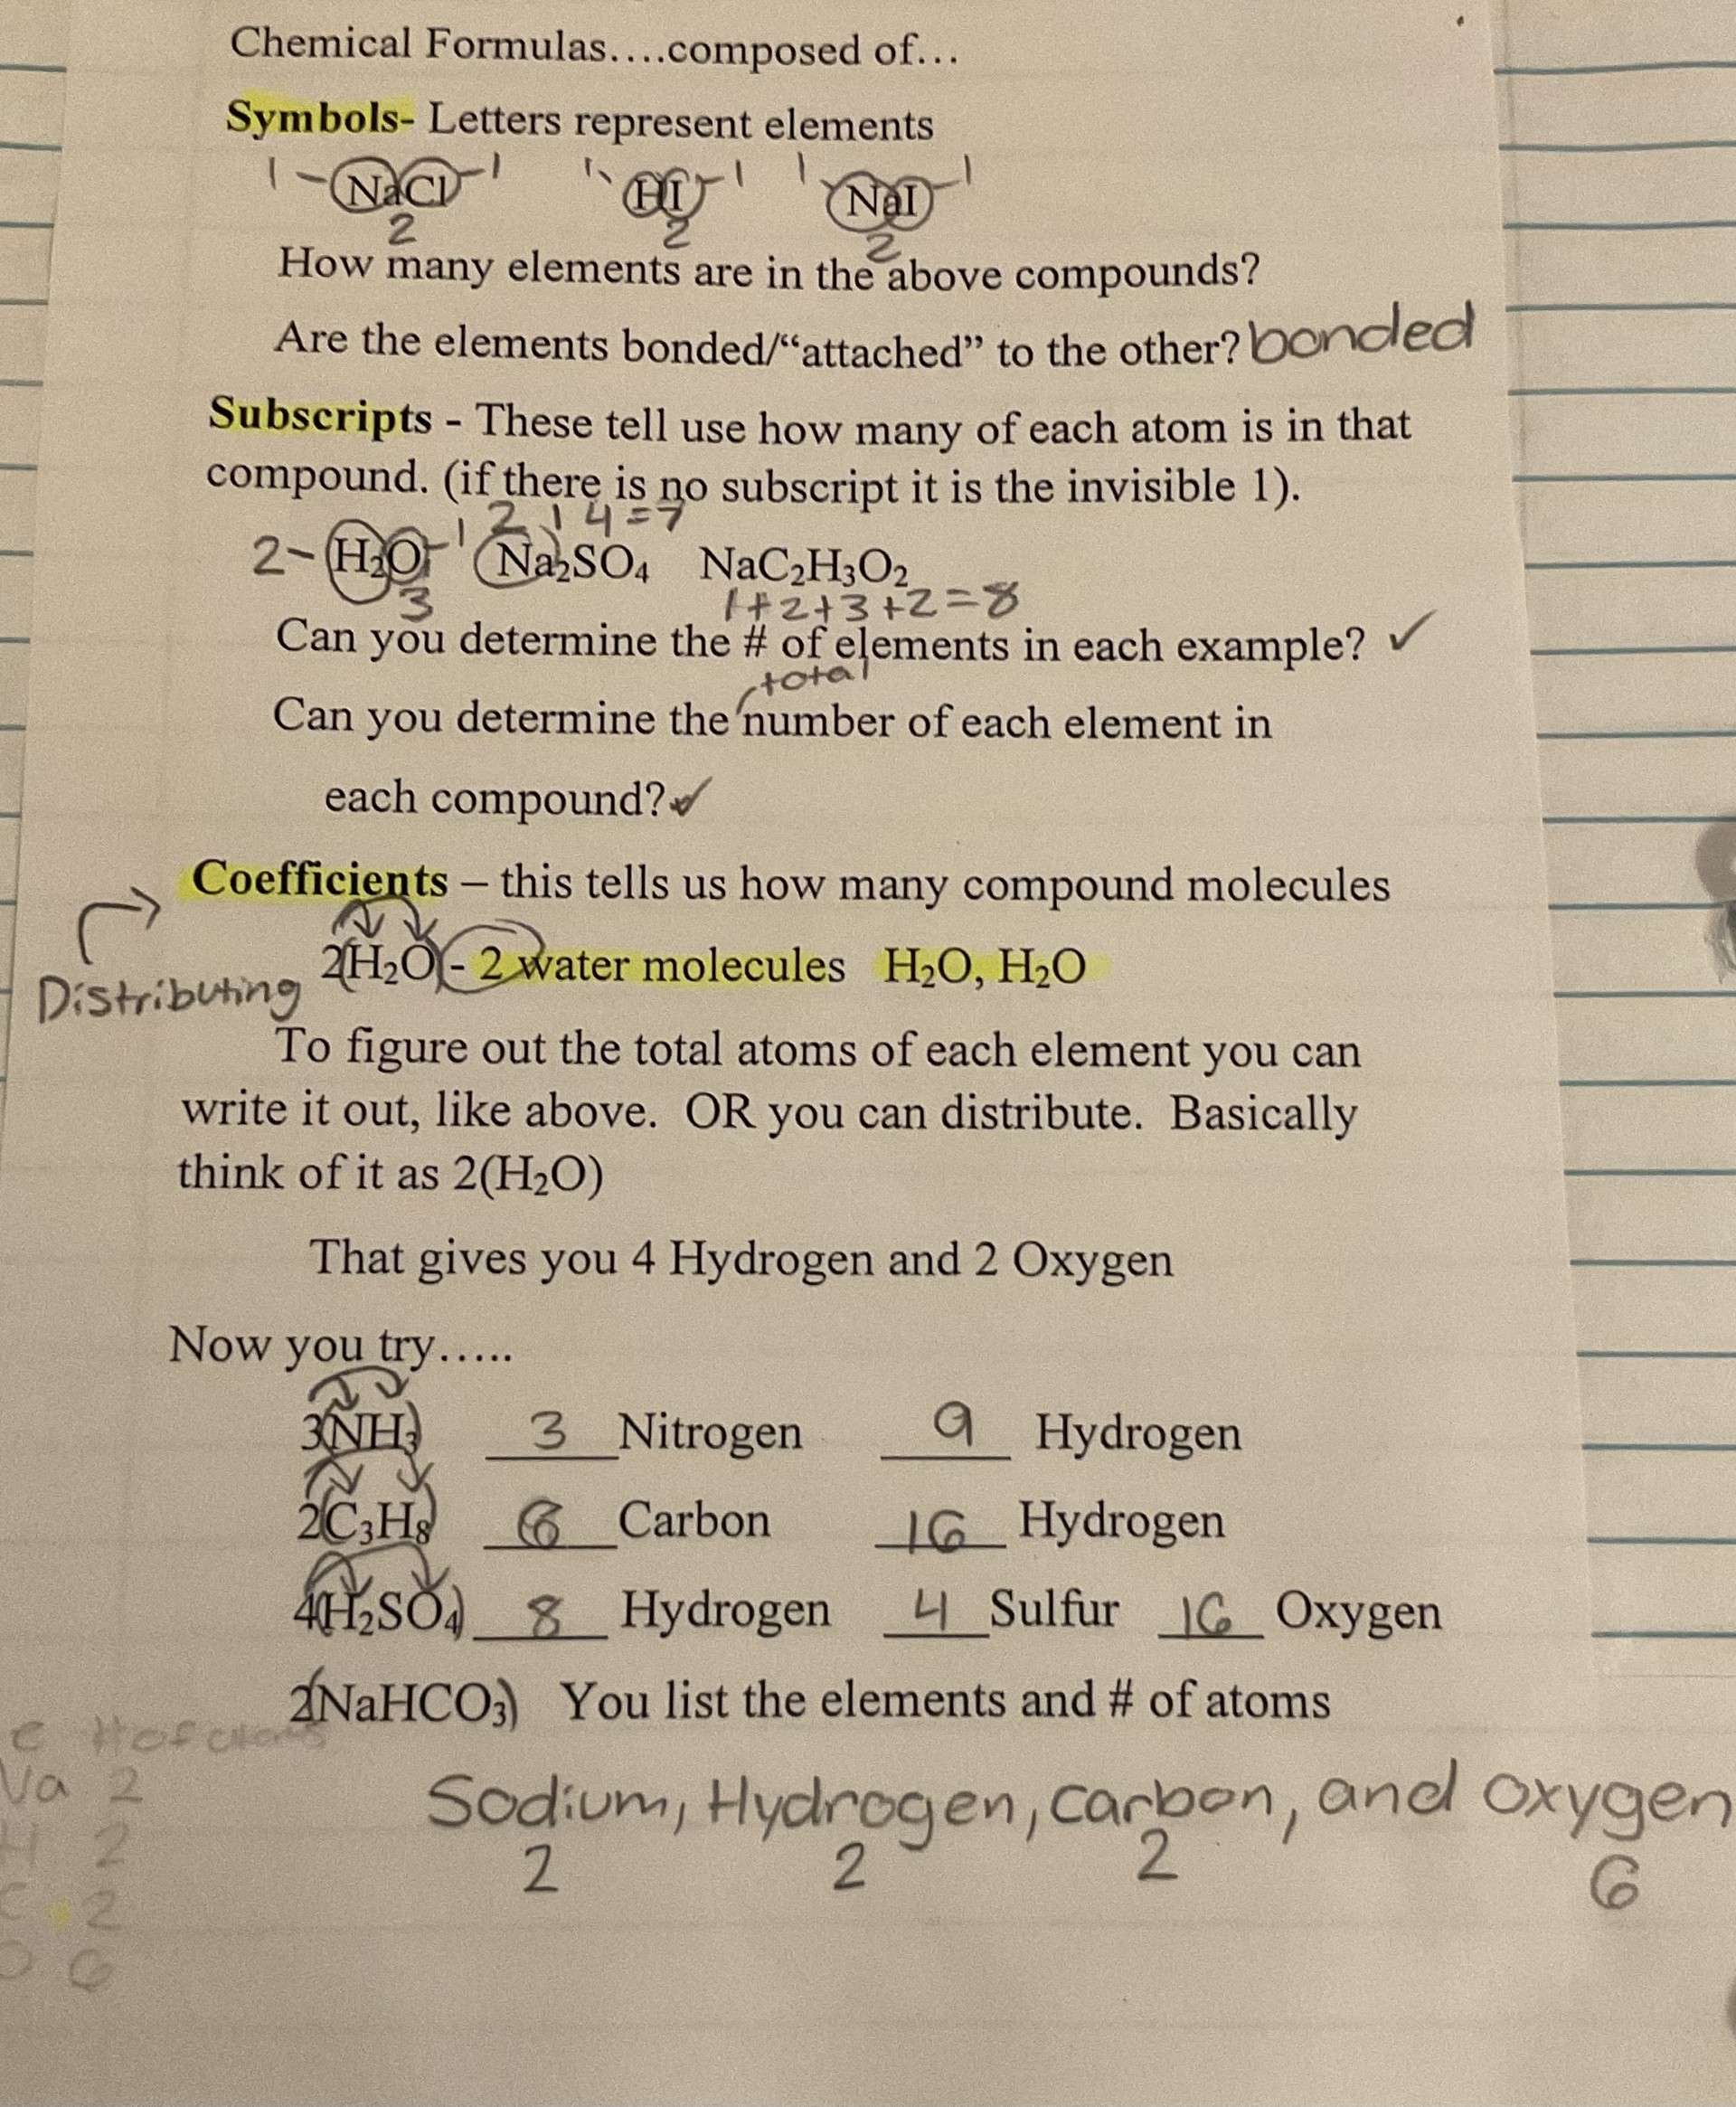 Chemical Formulas....composed of...
Symbols- Letters represent elements
1 - NaCl - 1 1 - HI - 1 1 - NaI - 1
2 2 2
How many elements are in the above compounds?
Are the elements bonded/“attached” to the other? bonded
Subscripts - These tell use how many of each atom is in that
compound. (if there is no subscript it is the invisible 1).
2 1 4 = 7
2 - H₂O - 1 Na₂SO₄ NaC₂H₃O₂
3 1+2+3+2=8
Can you determine the # of elements in each example? ✓
total
Can you determine the number of each element in
each compound? ✓
Coefficients – this tells us how many compound molecules
2(H₂O) - 2 water molecules H₂O, H₂O
Distributing
To figure out the total atoms of each element you can
write it out, like above. OR you can distribute. Basically
think of it as 2(H₂O)
That gives you 4 Hydrogen and 2 Oxygen
Now you try.....
3(NH₃) 3 Nitrogen 9 Hydrogen
2(C₃H₈) 6 Carbon 16 Hydrogen
4(H₂SO₄) 8 Hydrogen 4 Sulfur 16 Oxygen
2(NaHCO₃) You list the elements and # of atoms
e # of atoms
Na 2
H 2
C 2
O 6
Sodium, Hydrogen, carbon, and oxygen
2 2 2 6